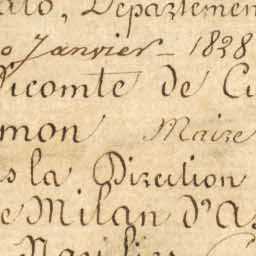 Departemen
Janvier 1828
Vicomte de
mon Maire
s la Direction
e Milan d'A